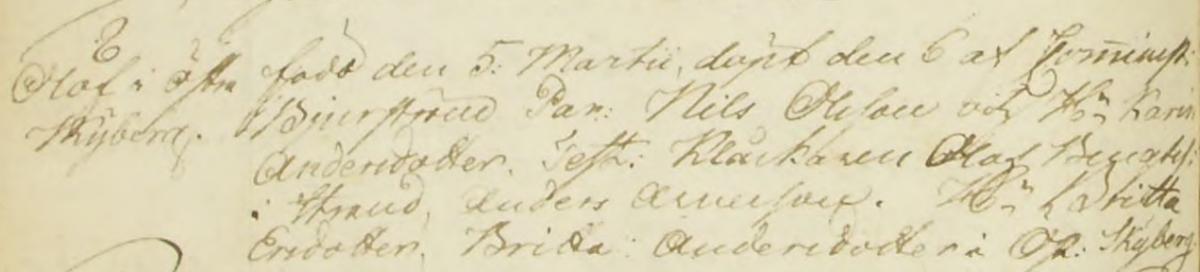 E
Olof i östra
Skyberg.
född den 5: Martii, döpt den 6 af Comminist.
Bjurstrand Par: Nils Olsson och H:n Karin
Andersdotter. Test: Klåckaren Olof Bengts:
i Strand, Anders Arneson. H:n Britta
Ersdotter. Britta Andersdotter i Ös: Skyberg